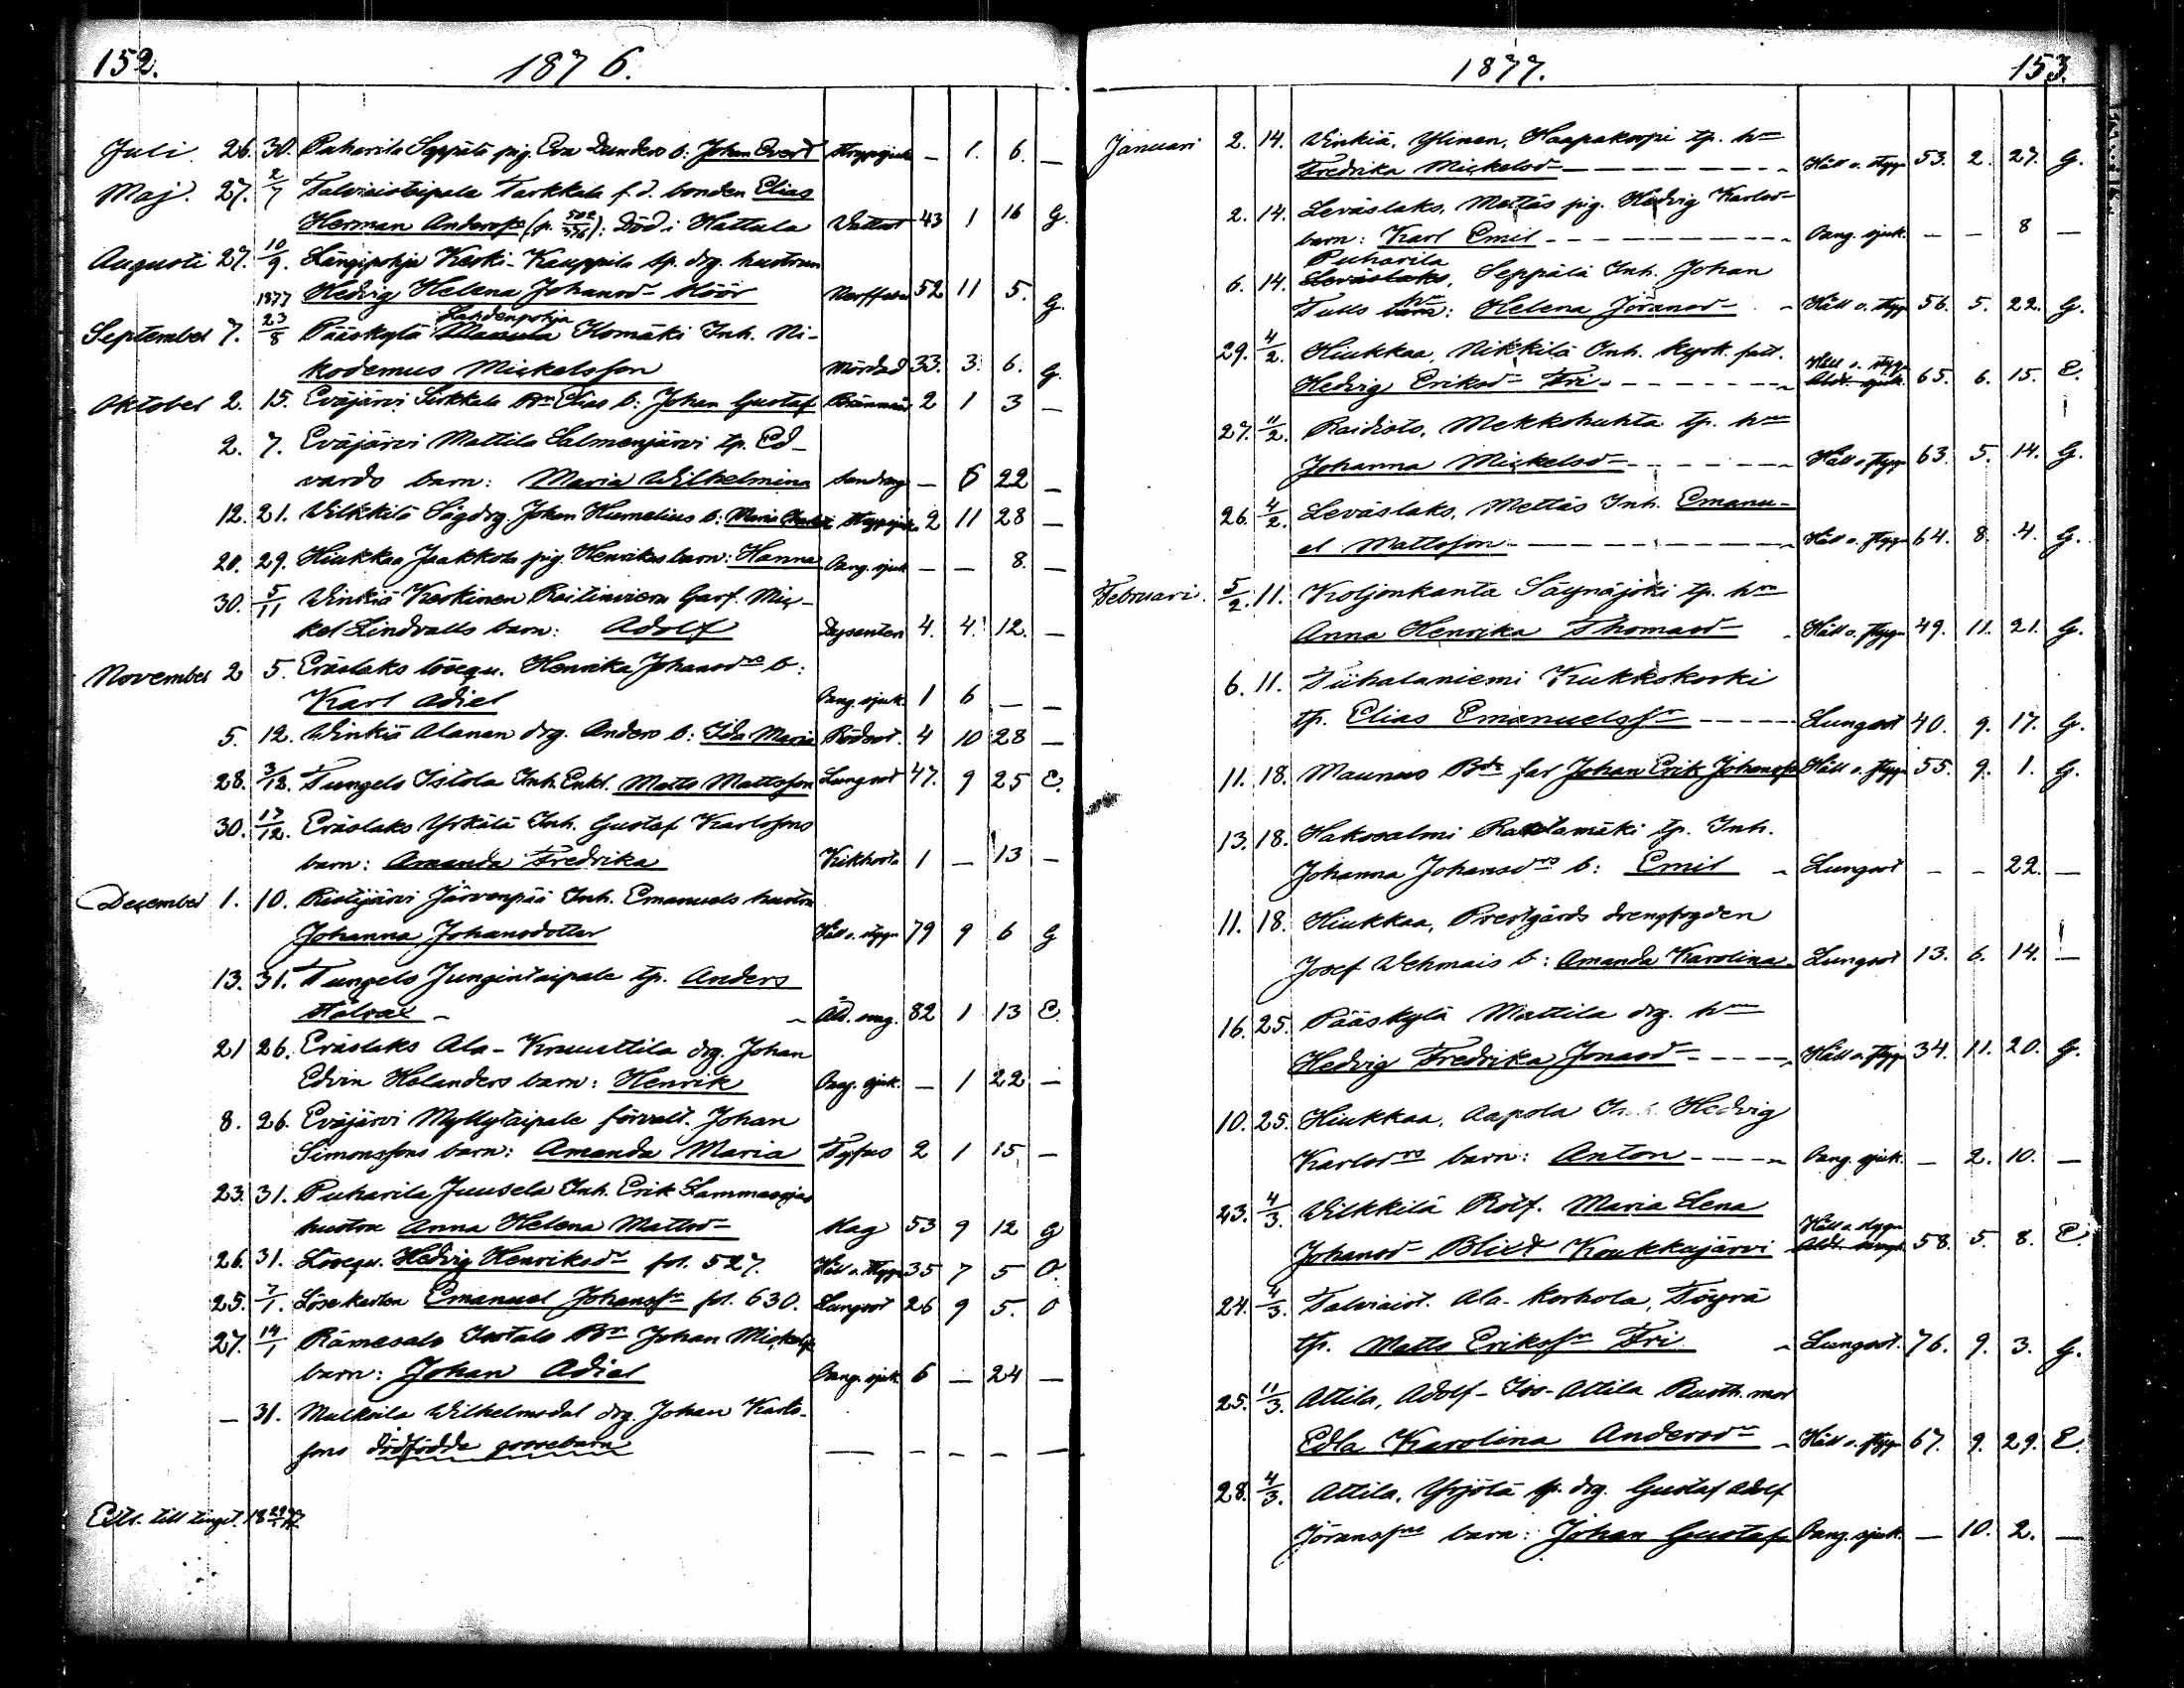 152.
1876.
Juli 26. 30. Puharila Seppälä pig. Eva Dunders b: Johan Evert Strypsjuka — 1. 6. —
Maj. 27. 2/7 Talviaistaipale Tarkkala f. d. bonden Elias
Herman Andersson (p. ): Död i Hattula Wattsot 43 1 16 G.
Augusti 27. 10/9. Längipohja Keski-Kauppila sp. drg. hustrun
1877 Hedvig Helena Johansd. Höör Nerffeber 52 11 5. G.
September 7. 23/8 Pääskylä Lahdenpohja Komäki Inh. Ni-
kodemus Mickelsson Mördad 33. 3. 6. G.
Oktober 2. 15. Eväjärvi Sirkkala Bn Elias b: Johan Gustaf Brännsår 2 1 3 —
2. 7. Eväjärvi Mattila Salmenjärvi tp. Ed-
vards barn: Maria Wilhelmina — 6 22 —
12. 21. Wilkkilä Sågdrg Johan Humelius b: Maria Strypsjuka 2 11 28 —
20. 29. Hiukkaa Jaakkola pig. Henrikas barn: Hanna Bang. sjuk — — 8. —
30. 5/11 Winkiä Keskinen Raitinviera Garf. Mic-
kel Lindvalls barn: Adolf Dysenteri 4. 4. 12. —
November 2 5. Eräslaks lösequ. Henrika Johansdrs b:
Karl Adiel Bang. sjuk. 1 6 — —
5. 12. Winkiä Alanen drg. Anders b: Ida Maria Rödsot. 4 10 28 —
28. 3/12. Tungelo Istola Inh. Enkl. Matts Mattsson Lungsot 47. 9 25 E.
30. 17/12. Eräslaks Yrkälä Inh. Gustaf Karlssons
barn: Amanda Fredrika Kikhosta 1 — 13 —
December 1. 10. Ristijärvi Järvenpää Inh. Emanuels hustru
Johanna Johansdotter Håll o. stygn 79 9 6 G
13. 31. Tungelo Junginstaipale tp. Anders
Stålvax Åld. svag. 82 1 13 E.
21 26. Eräslaks Ala-Knuuttila drg. Johan
Edvin Helanders barn: Henrik Bang. sjuk. — 1 22 —
8. 26. Eväjärvi Myllytaipale förvalt. Johan
Simonssons barn: Amanda Maria Tyfus 2 1 15 —
23. 31. Puharila Juusela Inh. Erik Lammasojas
hustru Anna Helena Mattsd. Slag 53 9 12 G
26. 31. Lösequ. Hedvig Henriksdr fol. 527. Håll o. Stygn 35 7 5 O.
25. 7/1. Lösekarlen Emanuel Johanssn fol. 630. Lungsot 26 9 5. O
27. 14/1 Rämesalo Isotalo Bn Johan Mickelss.
barn: Johan Adiel Bang. sjuk 6 — 24 —
— 31. Mulkoila Wilhelmsdal drg. Johan Karls-
sons dödfödda gossebarn — — — — —
Extr. till tinget.
1877.
153.
Januari 2. 14. Winkiä, Ylinen, Haapakorpi tp. hn
Fredrika Mickelsd. Håll o. stygn 53. 2. 27. G.
2. 14. Leväslaks, Mettäs pig. Hedvig Karlsd.
barn: Karl Emil Bang. sjuk. — — 8 —
Puharila
6. 14. Leväslaks, Seppälä Inh. Johan
Tulls hn barn: Helena Jöransd. Håll o. stygn 56. 5. 22. G.
29. 4/2. Hiukkaa, Nikkilä Inh. kyrk. fatt.
Hedvig Eriksd. Fri Håll o. stygn 65. 6. 15. E.
27. 11/2. Raidisto, Mekkohuhta tp. hn
Johanna Mickelsd. Håll o. stygn 63. 5. 14. G.
26. 4/2. Leväslaks, Mettäs Inh. Emanu-
el Mattsson Håll o. stygn 64. 8. 4. G.
Februari. 5/2. 11. Koljonkanta Säynäjoki tp. hn
Anna Henrika Thomasd. Håll o. stygn 49. 11. 21. G.
6. 11. Tiihalaniemi Kukkokoski
tp. Elias Emanuelssn Lungsot 40. 9. 17. G.
11. 18. Maunus Bds far Johan Erik Johansson Håll o. stygn 55. 9. 1. G.
13. 18. Hakosalmi Rantamäki tp. Inh.
Johanna Johansdrs b: Emil Lungsot — — 22. —
11. 18. Hiukkaa, Prestgårds drengfogden
Josef Wehmais b: Amanda Karolina Lungsot 13. 6. 14. —
16. 25. Pääskylä Mattila drg. hn
Hedvig Fredrika Jonasd. Håll o. stygn 34. 11. 20. G.
10. 25. Hiukkaa, Aapola Inh. Hedvig
Karlsdrs barn: Anton Bang. sjuk. — 2. 10. —
23. 4/3. Wilkkilä Rotf. Maria Lena
Johansd. Blixt Koukkujärvi Håll o. stygn 58. 5. 8. E.
24. 4/3. Talviaist. Ala-Korhola, Töyrä
tp. Matts Erikssn Fri Lungsot. 76. 9. 3. G.
25. 11/3. Attila, Adolf-Iso-Attila Rusth. mor
Edla Karolina Andersdr Håll o. stygn 67. 9. 29. E.
28. 4/3. Attila, Yrjölä sp. drg. Gustaf Adolf
Jöranssns barn: Johan Gustaf Bang. sjuk. — 10. 2. —